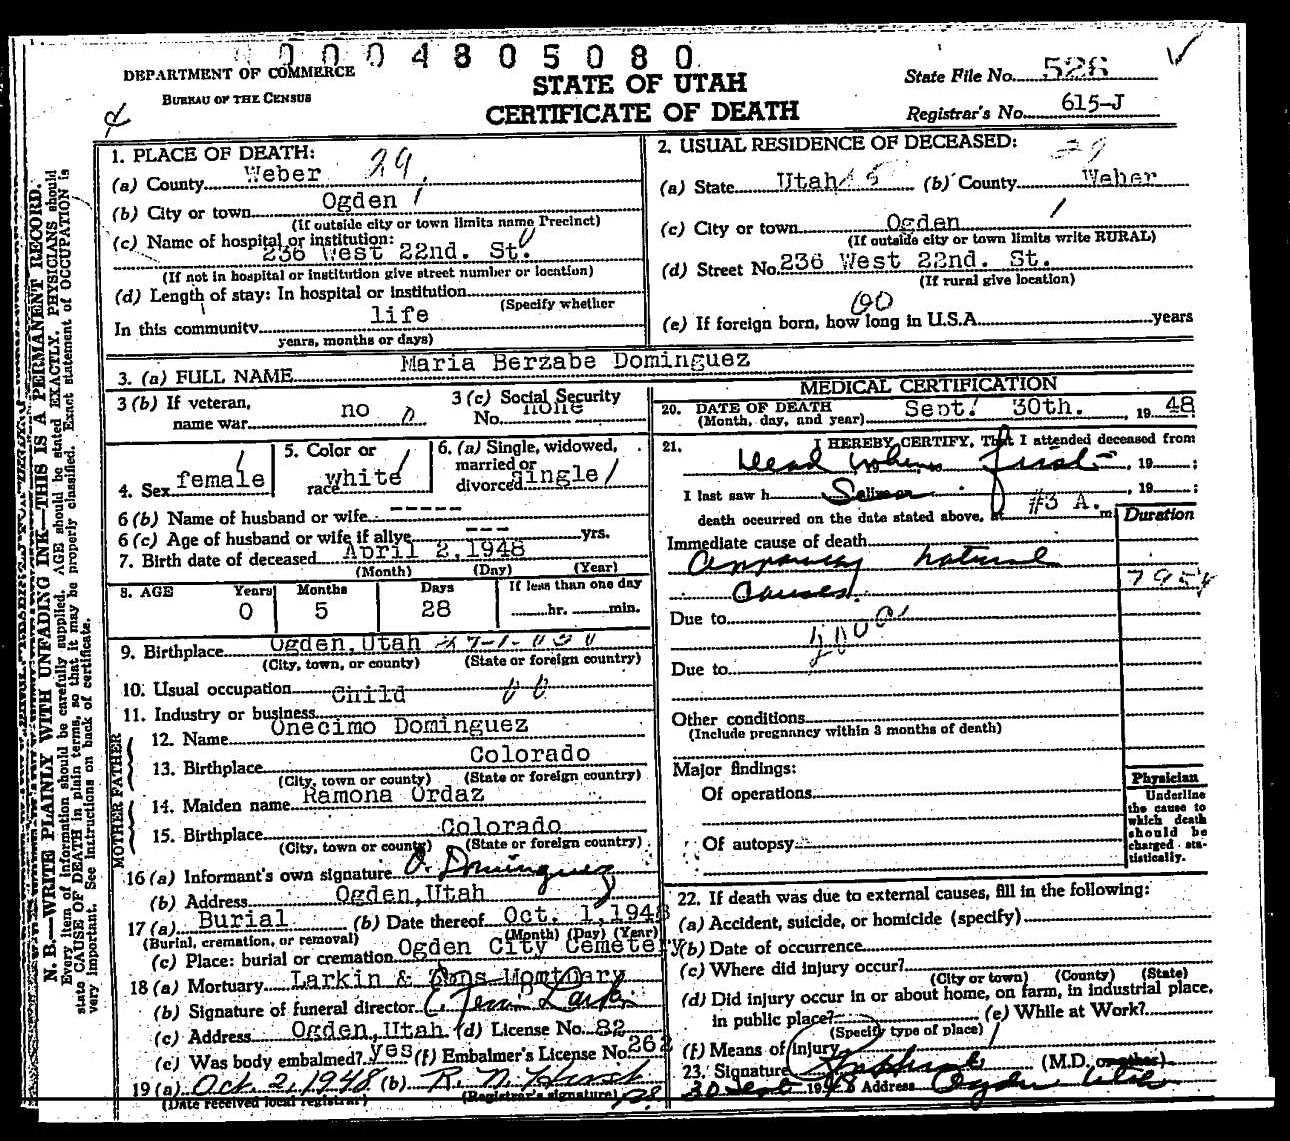 0004805080
DEPARTMENT OF COMMERCE
BUREAU OF THE CENSUS
STATE OF UTAH
CERTIFICATE OF DEATH
State File No. 526
Registrar's No. 615-J
N. B.—WRITE PLAINLY WITH UNFADING INK—THIS IS A PERMANENT RECORD.
Every item of information should be carefully supplied. AGE should be stated EXACTLY. PHYSICIANS should
state CAUSE OF DEATH in plain terms, so that it may be properly classified. Exact statement of OCCUPATION is
very important. See instructions on back of certificate.
1. PLACE OF DEATH: 29
(a) County Weber
(b) City or town Ogden
(If outside city or town limits name Precinct)
(c) Name of hospital or institution:
236 West 22nd. St.
(If not in hospital or institution give street number or location)
(d) Length of stay: In hospital or institution
(Specify whether
In this community life
years, months or days)
2. USUAL RESIDENCE OF DECEASED: 29
(a) State Utah (b) County Weber
(c) City or town Ogden
(If outside city or town limits write RURAL)
(d) Street No. 236 West 22nd. St.
(If rural give location)
00
(e) If foreign born, how long in U.S.A. years
3. (a) FULL NAME Maria Berzabe Dominguez
3 (b) If veteran, name war no
3 (c) Social Security No. none
4. Sex female
5. Color or race white
6. (a) Single, widowed, married or divorced single
6 (b) Name of husband or wife -----
6 (c) Age of husband or wife if alive --- yrs.
7. Birth date of deceased April 2, 1948
(Month) (Day) (Year)
8. AGE Years 0 Months 5 Days 28 If less than one day hr. min.
9. Birthplace Ogden, Utah
(City, town, or county) (State or foreign country)
10. Usual occupation Child
11. Industry or business
FATHER
12. Name Onecimo Dominguez
13. Birthplace Colorado
(City, town or county) (State or foreign country)
MOTHER
14. Maiden name Ramona Ordaz
15. Birthplace Colorado
(City, town or county) (State or foreign country)
16 (a) Informant's own signature O. Dominguez
(b) Address Ogden, Utah
17 (a) Burial (b) Date thereof Oct. 1, 1948
(Burial, cremation, or removal) (Month) (Day) (Year)
(c) Place: burial or cremation Ogden City Cemetery
18 (a) Mortuary Larkin & Sons Mortuary
(b) Signature of funeral director E. Larkin
(c) Address Ogden, Utah (d) License No. 82
(e) Was body embalmed? yes (f) Embalmer's License No. 262
19 (a) Oct. 2, 1948 (b) R. N. Hirst
(Date received local registrar) (Registrar's signature)
MEDICAL CERTIFICATION
20. DATE OF DEATH Sept. 30th. 1948
(Month, day, and year)
21. I HEREBY CERTIFY, That I attended deceased from
Dead when first, 19 ;
I last saw h , 19 ;
death occurred on the date stated above, at #3 A. m
Duration
Immediate cause of death
Apparently natural
causes.
795
Due to
Due to
Other conditions
(Include pregnancy within 3 months of death)
Major findings:
Of operations
Of autopsy
Physician
Underline
the cause to
which death
should be
charged statistically.
22. If death was due to external causes, fill in the following:
(a) Accident, suicide, or homicide (specify)
(b) Date of occurrence
(c) Where did injury occur?
(City or town) (County) (State)
(d) Did injury occur in or about home, on farm, in industrial place,
in public place? (e) While at Work?
(Specify type of place)
(f) Means of injury
23. Signature (M.D. or other)
30 Sept 1948 Address Ogden Utah